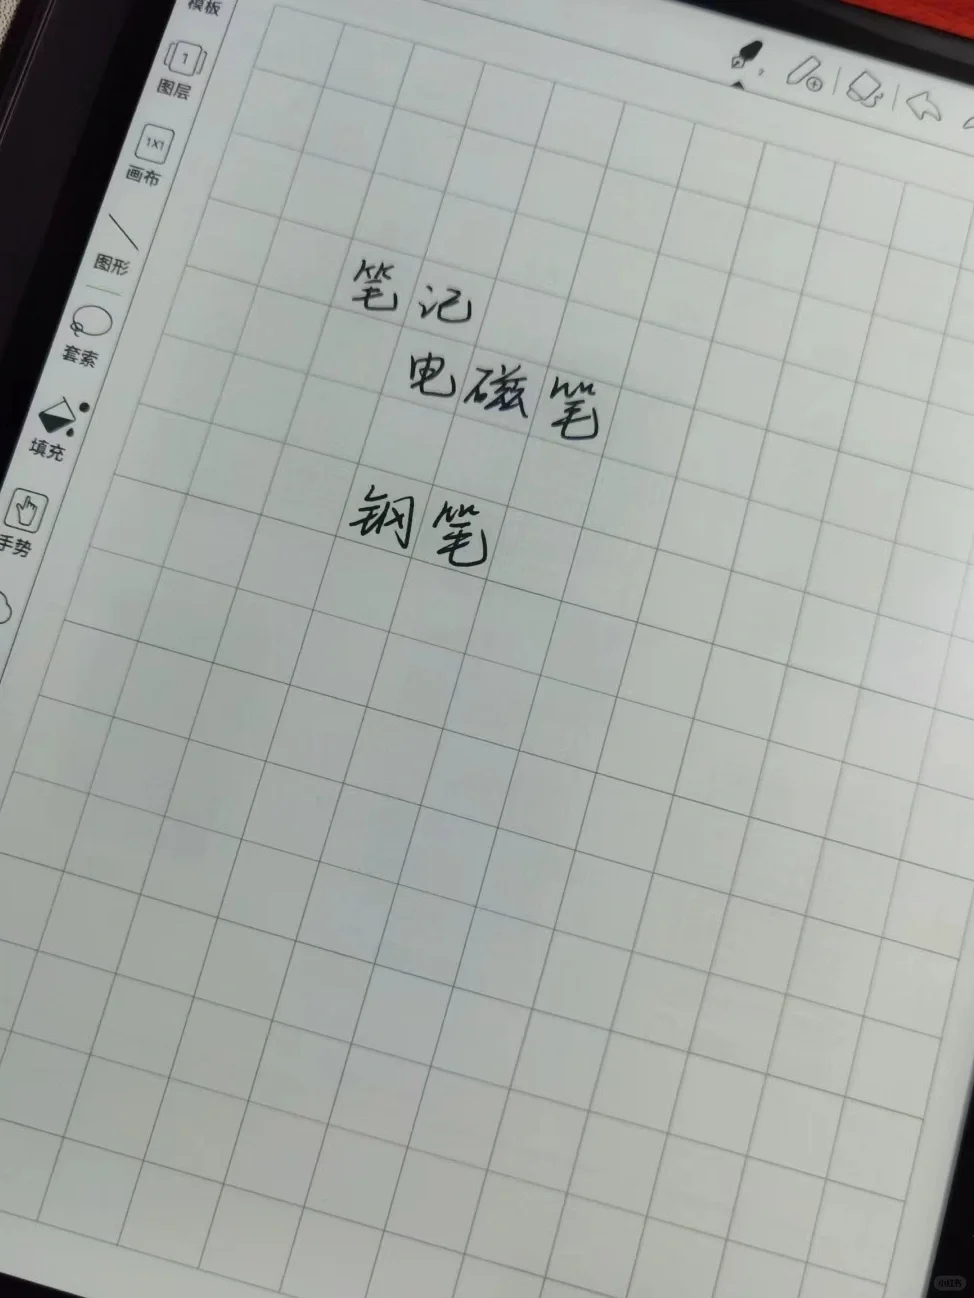 模板
1
图层
1X1
画布
图形
套索
填充
手势
笔记
电磁笔
钢笔